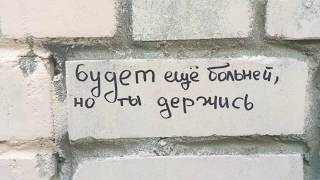 будет ещё больней,
но ты держись